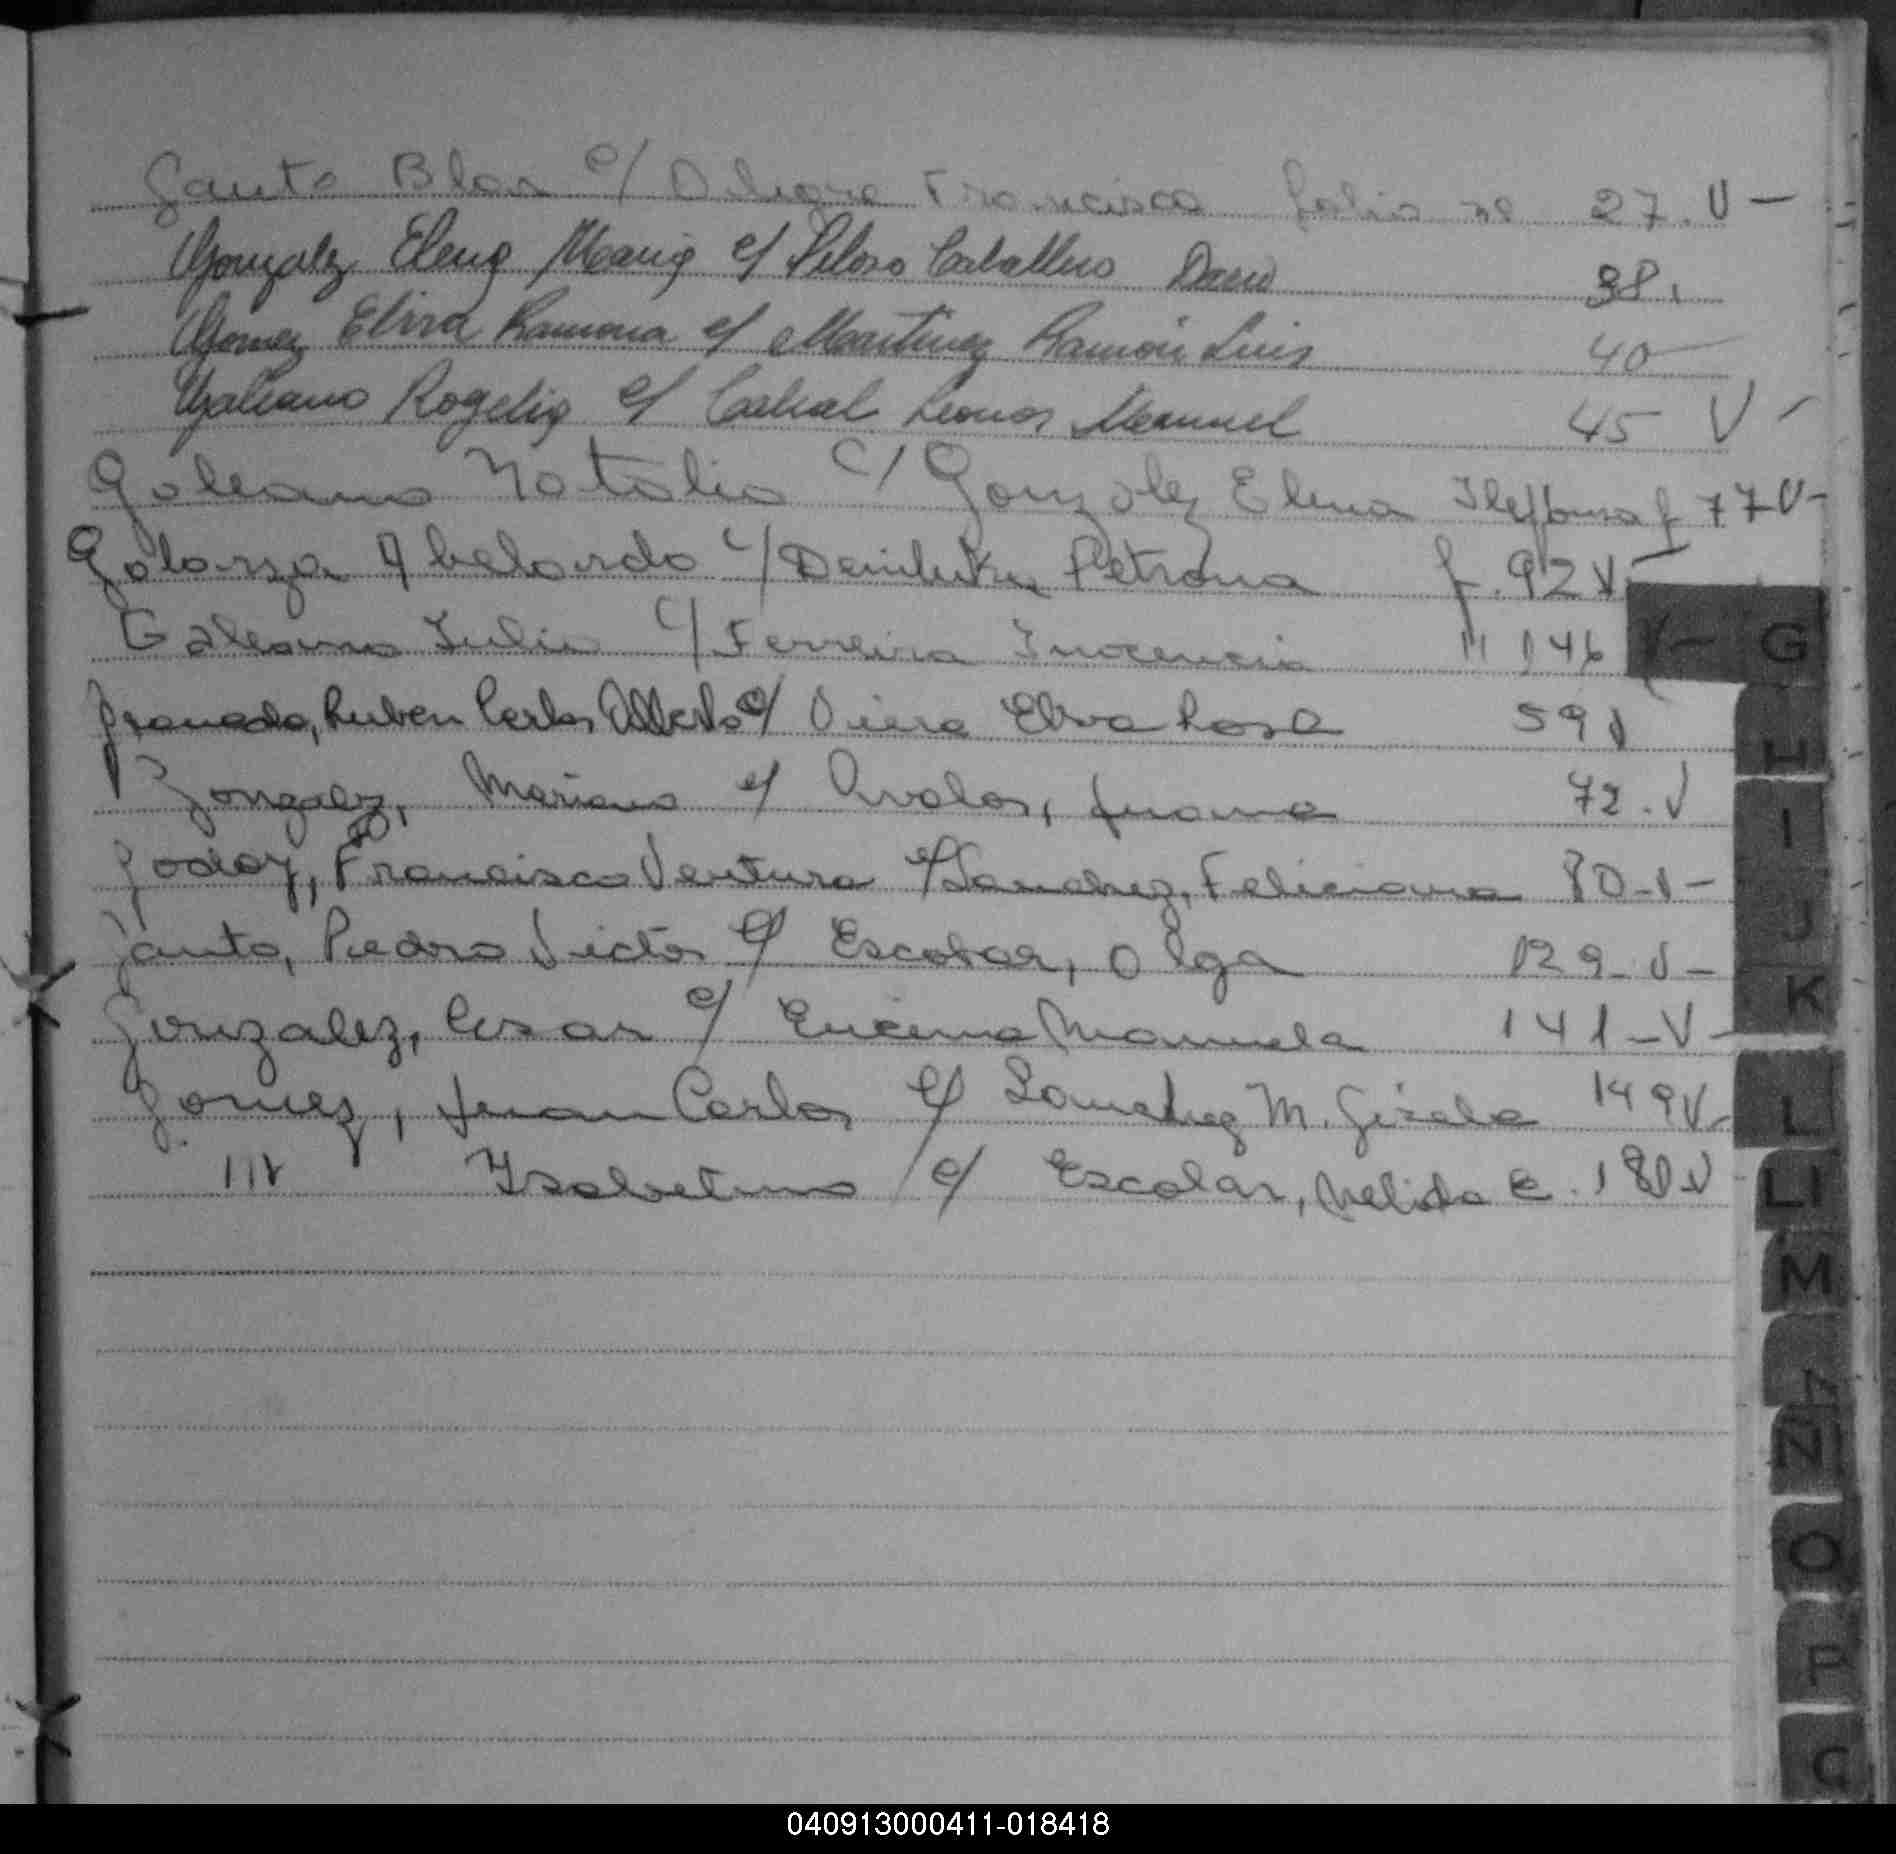 Gauto Blas c/ Alegre Francisca folio no 27. V -
Gonzalez Elena Maria c/ Peloso Caballero Dario 38.
Gomez Elisa Ramona c/ Martinez Ramón Luis 40
Galeano Rogelia c/ Cabral Leonor Manuel 45 V -
Galeano Natalio c/ Gonzalez Elena Ildefonsa f 77 V -
Galarza Abelardo c/ Petrona f. 92 V -
Galeano Julio c/ Ferreira Inocencia " 146 V -
Granada, Ruben Carlos Alberto c/ Viera Elva Rosa 59 V
Gonzalez, Mariano c/ Avalos, Juana 72. V
Godoy, Francisco Ventura c/ Sanchez, Feliciana 80 - V -
Gauto, Pedro Victor c/ Escobar, Olga 129 - V -
Gonzalez, Cesar c/ Encina Manuela 141 - V -
Gomez, Juan Carlos c/ Sanchez M. Gisela 149 V -
" Isabelino c/ Escobar, Nelida E. 180 V
G
H
I
J
K
L
Ll
M
N
Ñ
O
P
040913000411-018418